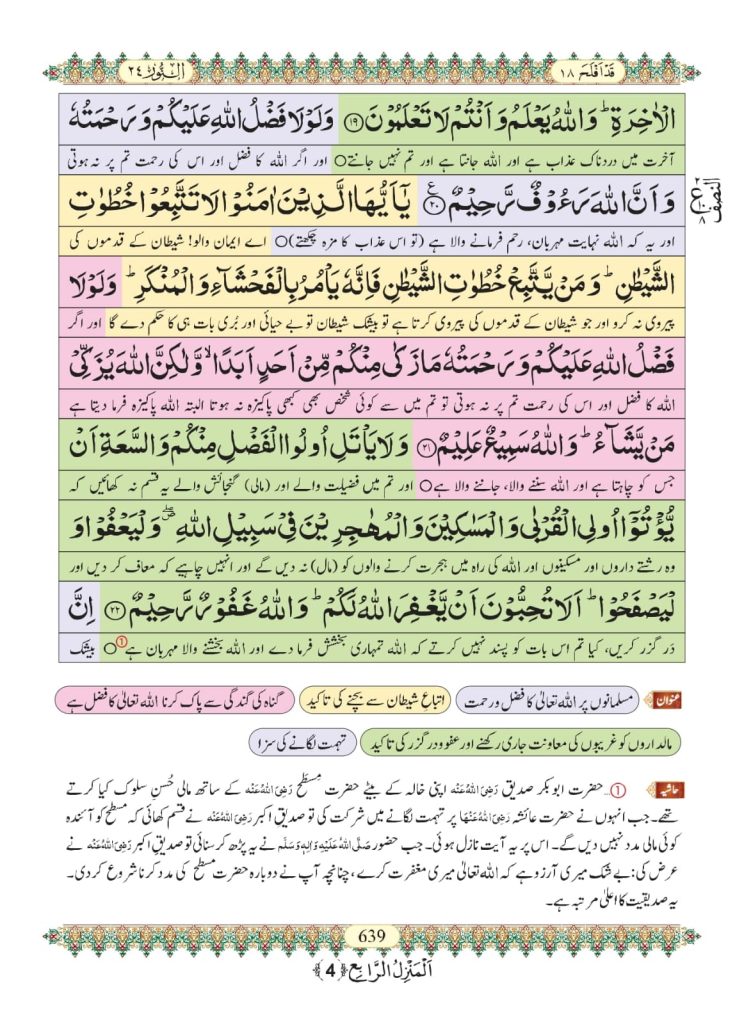 قَدْ اَفْلَحَ ١٨
اَلنُّوْر ٢٤
الْاٰخِرَةِ ؕ وَاللّٰهُ يَعْلَمُ وَ اَنْتُمْ لَا تَعْلَمُوْنَ ﴿۱۹﴾ وَلَوْلَا فَضْلُ اللّٰهِ عَلَيْكُمْ وَرَحْمَتُهٗ
آخرت میں دردناک عذاب ہے اور اللہ جانتا ہے اور تم نہیں جانتے○ اور اگر اللہ کا فضل اور اس کی رحمت تم پر نہ ہوتی
وَ اَنَّ اللّٰهَ رَءُوْفٌ رَّحِيْمٌ ﴿۲۰﴾ ع يٰۤاَيُّهَا الَّذِيْنَ اٰمَنُوْا لَا تَتَّبِعُوْا خُطُوٰتِ
النصف
٢
ع
٨
اور یہ کہ اللہ نہایت مہربان، رحم فرمانے والا ہے (تو اس عذاب کا مزہ چکھتے)○ اے ایمان والو! شیطان کے قدموں کی
الشَّيْطٰنِ ؕ وَ مَنْ يَّتَّبِعْ خُطُوٰتِ الشَّيْطٰنِ فَاِنَّهٗ يَاْمُرُ بِالْفَحْشَآءِ وَ الْمُنْكَرِ ؕ وَلَوْلَا
پیروی نہ کرو اور جو شیطان کے قدموں کی پیروی کرتا ہے تو بیشک شیطان تو بے حیائی اور بُری بات ہی کا حکم دے گا اور اگر
فَضْلُ اللّٰهِ عَلَيْكُمْ وَ رَحْمَتُهٗ مَا زَكٰى مِنْكُمْ مِّنْ اَحَدٍ اَبَدًا ۙ وَّلٰكِنَّ اللّٰهَ يُزَكِّيْ
اللہ کا فضل اور اس کی رحمت تم پر نہ ہوتی تو تم میں سے کوئی شخص بھی کبھی پاکیزہ نہ ہوتا البتہ اللہ پاکیزہ فرما دیتا ہے
مَنْ يَّشَآءُ ؕ وَاللّٰهُ سَمِيْعٌ عَلِيْمٌ ﴿۲۱﴾ وَ لَا يَاْتَلِ اُولُوا الْفَضْلِ مِنْكُمْ وَ السَّعَةِ اَنْ
جس کو چاہتا ہے اور اللہ سننے والا، جاننے والا ہے○ اور تم میں فضیلت والے اور (مالی) گنجائش والے یہ قسم نہ کھائیں کہ
يُّؤْتُوْۤا اُولِي الْقُرْبٰى وَ الْمَسٰكِيْنَ وَ الْمُهٰجِرِيْنَ فِيْ سَبِيْلِ اللّٰهِ ۪ۖ وَ لْيَعْفُوْا وَ
وہ رشتے داروں اور مسکینوں اور اللہ کی راہ میں ہجرت کرنے والوں کو (مال) نہ دیں گے اور انہیں چاہیے کہ معاف کر دیں اور
لْيَصْفَحُوْا ؕ اَلَا تُحِبُّوْنَ اَنْ يَّغْفِرَ اللّٰهُ لَكُمْ ؕ وَاللّٰهُ غَفُوْرٌ رَّحِيْمٌ ﴿۲۲﴾ اِنَّ
در گزر کریں، کیا تم اس بات کو پسند نہیں کرتے کہ اللہ تمہاری بخشش فرما دے اور اللہ بخشنے والا مہربان ہے①○ بیشک
عنوان مسلمانوں پر اللہ تعالیٰ کا فضل ورحمت اتباعِ شیطان سے بچنے کی تاکید گناہ کی گندگی سے پاک کرنا اللہ تعالیٰ کا فضل ہے
مالداروں کو غریبوں کی معاونت جاری رکھنے اور عفو ودرگزر کی تاکید تہمت لگانے کی سزا
حاشیہ ①…حضرت ابوبکر صدیق رَضِیَ اللہُ عَنْہُ اپنی خالہ کے بیٹے حضرت مِسْطَح رَضِیَ اللہُ عَنْہُ کے ساتھ مالی حُسنِ سلوک کیا کرتے
تھے۔ جب انہوں نے حضرت عائشہ رَضِیَ اللہُ عَنْہَا پر تہمت لگانے میں شرکت کی تو صدیقِ اکبر رَضِیَ اللہُ عَنْہُ نے قسم کھائی کہ مسطح کو آئندہ
کوئی مالی مدد نہیں دیں گے۔ اس پر یہ آیت نازل ہوئی۔ جب حضور صَلَّی اللہُ عَلَیْہِ وَاٰلِہٖ وَسَلَّم نے یہ پڑھ کر سنائی تو صدیقِ اکبر رَضِیَ اللہُ عَنْہُ نے
عرض کی: بے شک میری آرزو ہے کہ اللہ تعالیٰ میری مغفرت کرے، چنانچہ آپ نے دوبارہ حضرت مسطح کی مدد کرنا شروع کردی۔
یہ صدیقیت کا اعلیٰ مرتبہ ہے۔
639
اَلْمَنْزِلُ الرَّابِع ﴿4﴾